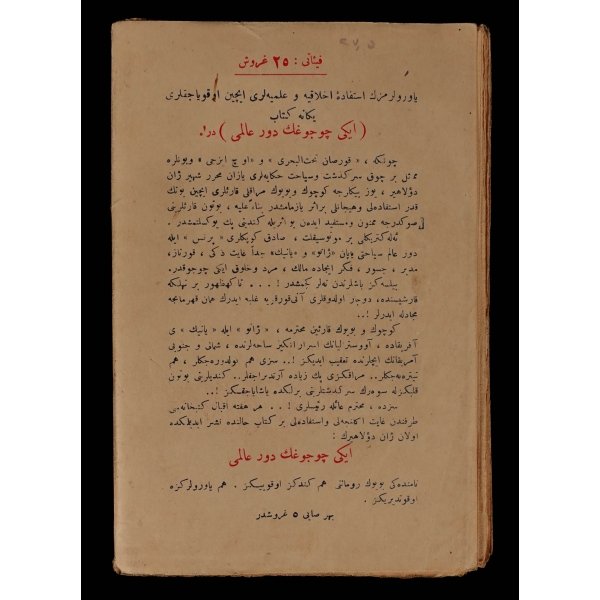 فیئاتی : ٢٥ غروش
یاورولرمزك استفادهٔ اخلاقیه و علمیه‌لری ایچین اوقویاجقلری
یكانه كتاب
( ایكی چوجوغك دور عالمی ) در.
چونكه ، « قورصان تحت‌البحری » و « اوچ ایزجی » وبونلره
مماثل بر چوق سركذشت وسیاحت حكایه‌لری یازان محرر شهیر ژان
دؤلاهیر ، یوز بیكلرجه كوچوك وبویوك مراقلی قارئلری ایچین بونك
قدر استفاده‌لی وهیجانلی براثر یازمامشدر بناءً علیه ، بوتون قارئلرینی
صوكدرجه ممنون ومستفید ایدەن بواثریله كندینی پك یوكسلتمشدر .
ئه‌له‌كتریكلی بر موتوسیقلت ، صادق كوپكلری « پرنس » ایله
دور عالم سیاحتی یاپان « ژانو » و « یانیك » جداً غایت ذكی ، قورناز،
مدبر ، جسور ، فكر ایجاده مالك ، مرد وخلوق ایكی چوجوقدر.
بیلسه‌كز باشلرندن نه‌لر كچمشدر ! . . . ناكهظهور بر تهلكه
قارشیسنده، دوچار اولدوقلری آنی‌قورقویه غلبه ایدرك همان قهرمانجه
مجادله ایدرلر !..
كوچوك و بویوك قارئین محترمه ، « ژانو » ایله « یانیك » ی
آفریقاده ، آووسترالیانك اسرار انكیز ساحه‌لرنده ، شمالی و جنوبی
آمریقانك ایچلرنده تعقیب ایدیكز !.. سزی هم كولدوره‌جكلر ، هم
تیتره‌ته‌جكلر.. مراقكزی پك زیاده آرتدیراجقلر.. كندیلرینی بوتون
قلبكزله سوه‌رك سركذشتلرینی برلكده یاشایاجقسكز !..
سزده ، محترم عائله رئیسلری !.. هر هفته اقبال كتبخانه‌سی
طرفندن غایت اكلنجه‌لی واستفاده‌لی بر كتاب حالنده نشر ایدیلمكده
اولان ژان دؤلاهیرك :
ایكی چوجوغك دور عالمی
نامنده‌كی بویوك رومانی هم كندكز اوقوییكز . هم یاورولركزه
اوقوتدیریكز .
بهر صایی ٥ غروشدر